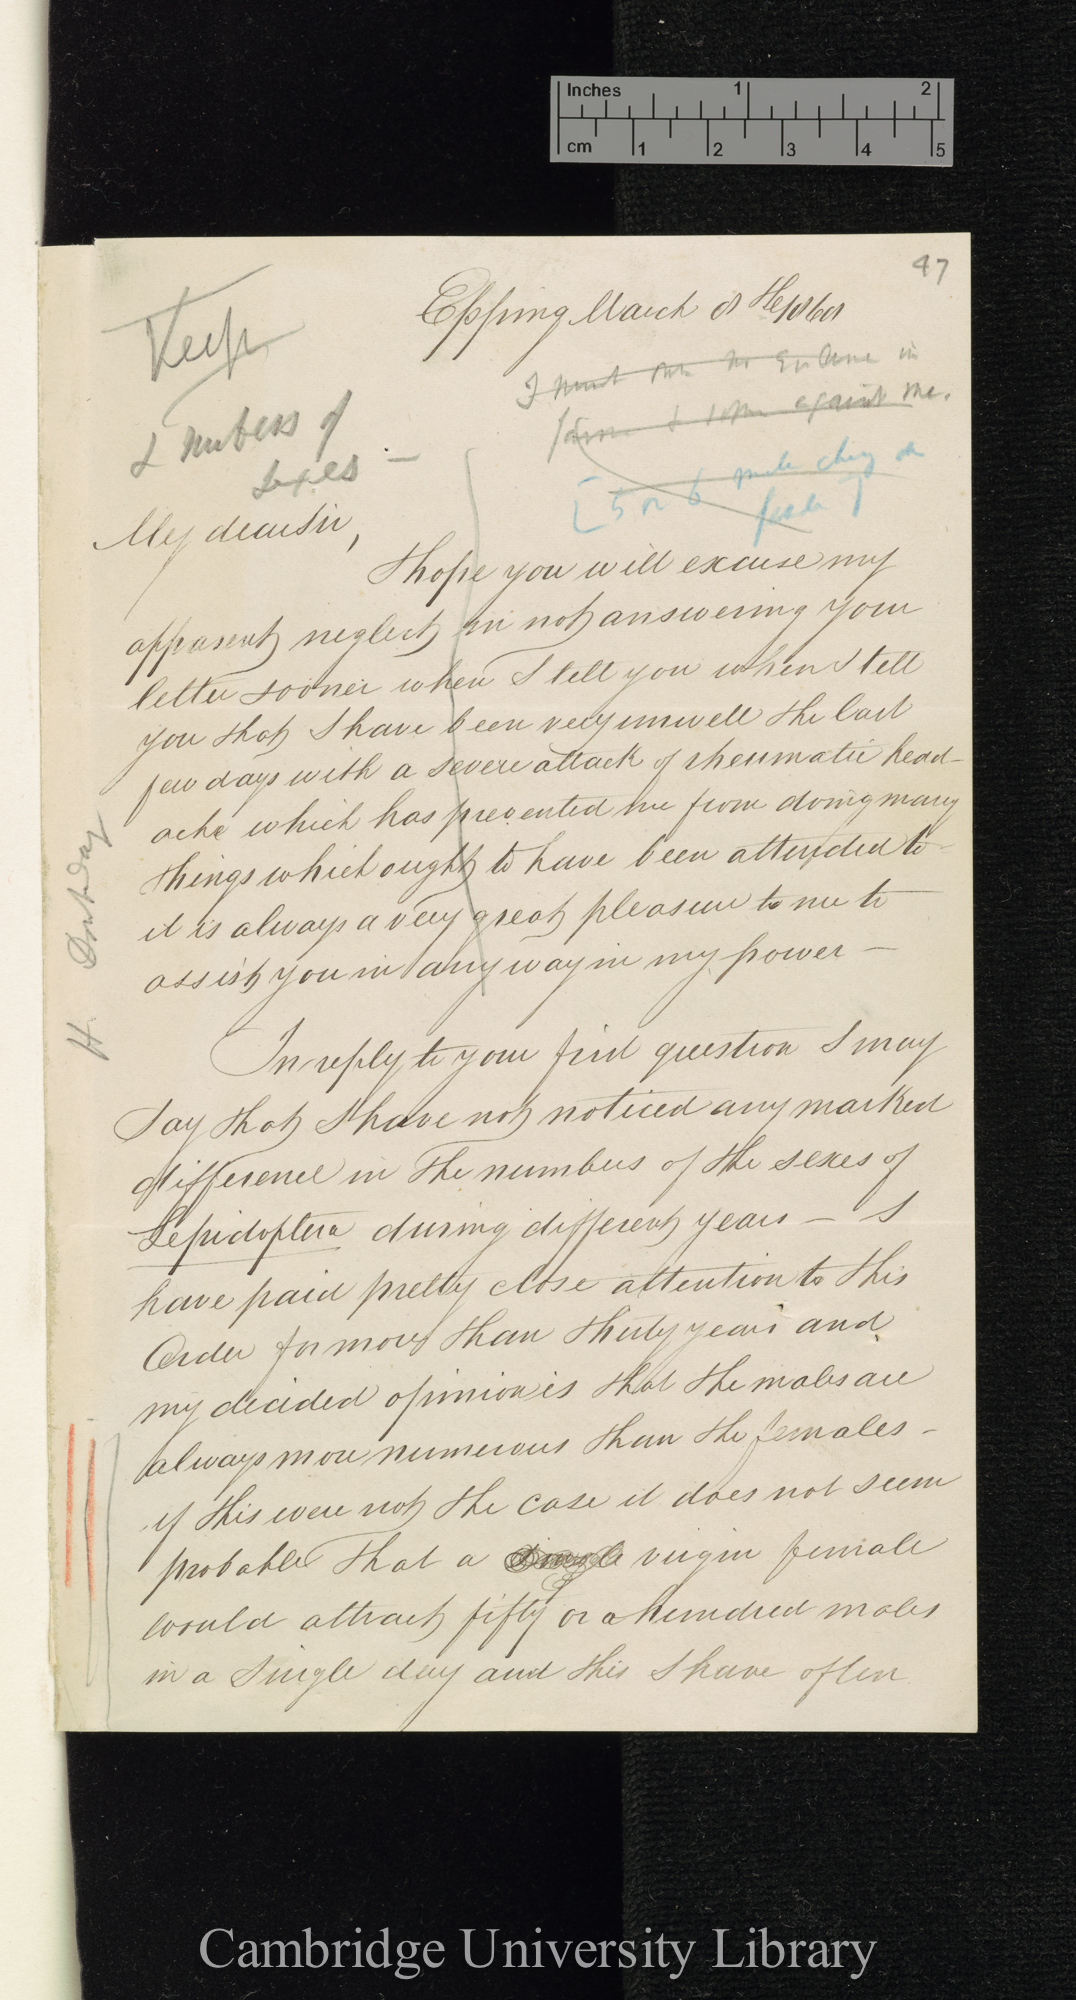 Inches 1 2
cm 1 2 3 4 5
47
Keep
Epping March 8th /1868
I must own no evidence in
favour & some against me.
& Numbers of
Sexes —
[5 or 6 male cling on
female]
My dear Sir,
I hope you will excuse my
apparent neglect in not answering your
letter sooner when I tell you when I tell
you that I have been very unwell the last
few days with a severe attack of rheumatic head-
ache which has prevented me from doing many
things which ought to have been attended to
it is always a very great pleasure to me to
assist you in any way in my power —
H. Doubleday
In reply to your first question I may
say that I have not noticed any marked
difference in the numbers of the sexes of
Lepidoptera during different years — I
have paid pretty close attention to this
Order for more than thirty years and
my decided opinion is that the males are
always more numerous than the females -
if this were not the case it does not seem
probable that a single virgin female
would attract fifty or a hundred males
in a single day and this I have often
Cambridge University Library